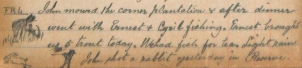 FRI. John mowed the corner plantation & after dinner
went with Ernest & Cyril fishing. Ernest brought
us a trout today. Wehad fish for tea. Light rain
John shot a rabbit yesterday in